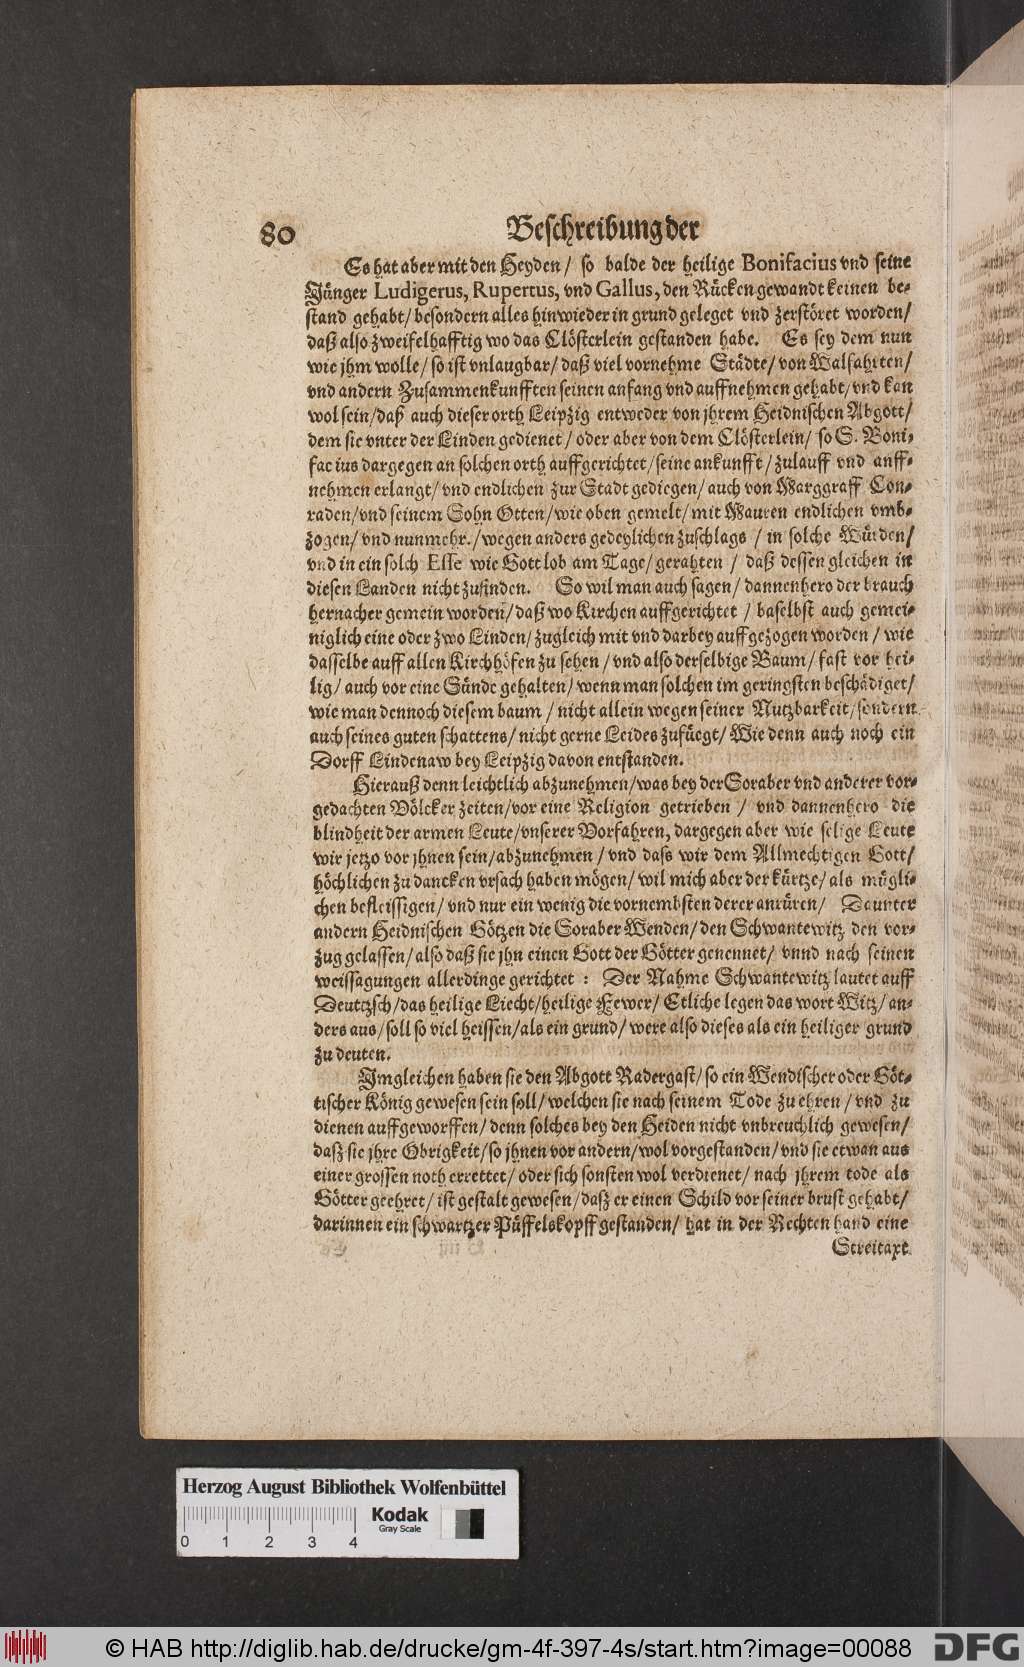 80 Beschreibung der
Es hat aber mit den Heyden / so balde der heilige Bonifacius vnd seine
Jünger Ludigerus, Rupertus, vnd Gallus, den Rücken gewandt keinen be-
stand gehabt / besondern alles hinwieder in grund geleget vnd zerstöret worden /
daß also zweifelhafftig wo das Clösterlein gestanden habe. Es sey dem nun
wie jhm wolle / so ist vnlaugbar / daß viel vornehme Städte / von Walfahrten /
vnd andern Zusammenkunfften seinen anfang vnd auffnehmen gehabt / vnd kan
wol sein / daß auch dieser orth Leipzig entweder von jhrem Heidnischen Abgott /
dem sie vnter der Linden gedienet / oder aber von dem Clösterlein / so S. Boni-
facius dargegen an solchen orth auffgerichtet / seine ankunfft / zulauff vnd auff-
nehmen erlangt / vnd endlichen zur Stadt gediegen / auch von Marggraff Con-
raden / vnd seinem Sohn Otten / wie oben gemelt / mit Mauren endlichen vmb-
zogen / vnd nunmehr. / wegen anders gedeylichen zuschlags / in solche Würden /
vnd in ein solch Esse wie Gott lob am Tage / gerahten / daß dessen gleichen in
diesen Landen nicht zufinden. So wil man auch sagen / dannenhero der brauch
hernacher gemein worden / daß wo Kirchen auffgerichtet / daselbst auch gemei-
niglich eine oder zwo Linden / zugleich mit vnd darbey auffgezogen worden / wie
dasselbe auff allen Kirchhöfen zu sehen / vnd also derselbige Baum / fast vor hei-
lig / auch vor eine Sünde gehalten / wenn man solchen im geringsten beschädiget /
wie man dennoch diesem baum / nicht allein wegen seiner Nutzbarkeit / sondern
auch seines guten schattens / nicht gerne Leides zufüegt / Wie denn auch noch ein
Dorff Lindenaw bey Leipzig davon entstanden.
Hierauß denn leichtlich abzunehmen / was bey der Soraber vnd anderer vor-
gedachten Völcker zeiten / vor eine Religion getrieben / vnd dannenhero die
blindheit der armen Leute / vnserer Vorfahren, dargegen aber wie selige Leute
wir jetzo vor jhnen sein / abzunehmen / vnd dass wir dem Allmechtigen Gott /
höchlichen zu dancken vrsach haben mögen / wil mich aber der kürtze / als mügli-
chen befleissigen / vnd nur ein wenig die vornembsten derer anrüren / Daunter
andern Heidnischen Götzen die Soraber Wenden / den Schwantewitz den vor-
zug gelassen / also daß sie jhn einen Gott der Götter genennet / vnnd nach seinen
weissagungen allerdinge gerichtet : Der Nahme Schwantewitz lautet auff
Deutzsch / das heilige Liecht / heilige Fewer / Etliche legen das wort Witz / an-
ders aus / soll so viel heissen / als ein grund / were also dieses als ein heiliger grund
zu deuten.
Imgleichen haben sie den Abgott Radergast / so ein Wendischer oder Göt-
tischer König gewesen sein soll / welchen sie nach seinem Tode zu ehren / vnd zu
dienen auffgeworffen / denn solches bey den Heiden nicht vnbreuchlich gewesen /
daß sie jhre Obrigkeit / so jhnen vor andern / wol vorgestanden / vnd sie etwan aus
einer grossen noth errettet / oder sich sonsten wol verdienet / nach jhrem tode als
Götter geehret / ist gestalt gewesen / daß er einen Schild vor seiner brust gehabt /
darinnen ein schwartzer Püffelskopff gestanden / hat in der Rechten hand eine
Streitaxt
Herzog August Bibliothek Wolfenbüttel
Kodak
Gray Scale
0 1 2 3 4
© HAB http://diglib.hab.de/drucke/gm-4f-397-4s/start.htm?image=00088 DFG